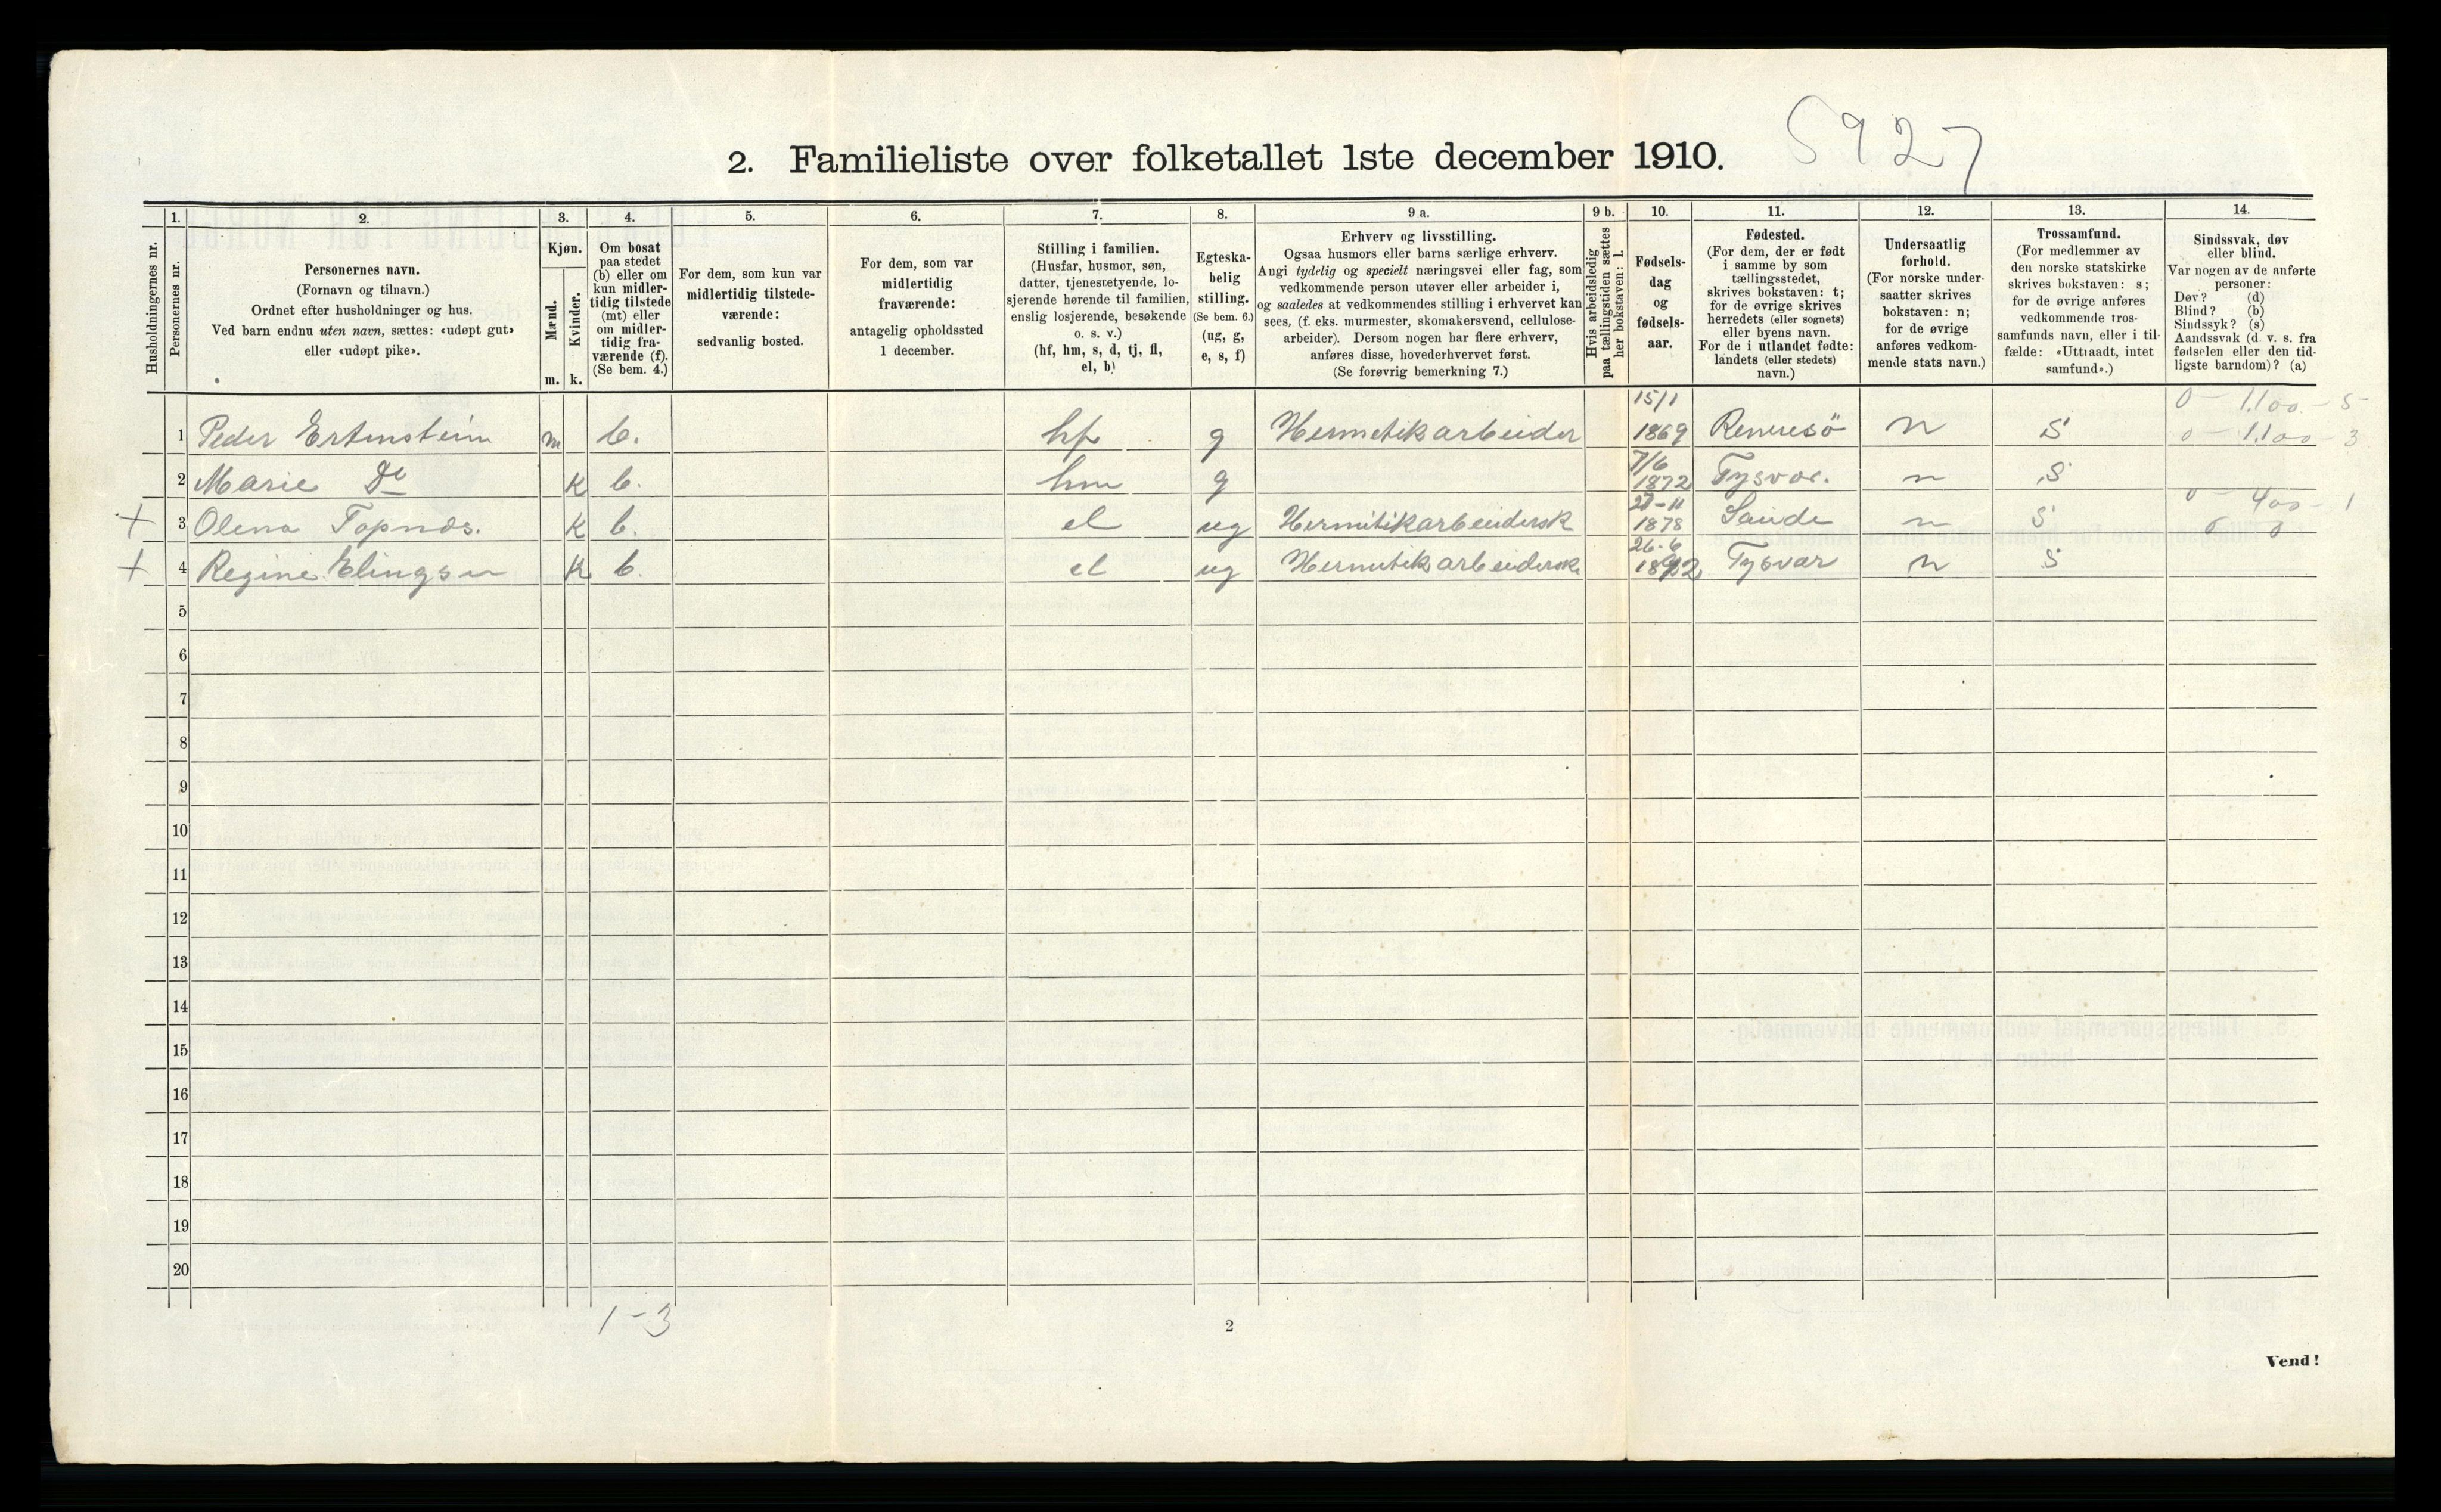 5927
2. Familieliste over folketallet 1ste december 1910.
Husholdningernes nr.
1.
Personernes nr.
2.
Personernes navn.
(Fornavn og tilnavn.)
Ordnet efter husholdninger og hus.
Ved barn endnu uten navn, sættes: «udøpt gut»
eller «udøpt pike».
3.
Kjøn.
Mænd.
Kvinder.
m. k.
4.
Om bosat
paa stedet
(b) eller om
kun midler-
tidig tilstede
(mt) eller
om midler-
tidig fra-
værende (f).
(Se bem. 4.)
5.
For dem, som kun var
midlertidig tilstede-
værende:
sedvanlig bosted.
6.
For dem, som var
midlertidig
fraværende:
antagelig opholdssted
1 december.
7.
Stilling i familien.
(Husfar, husmor, søn,
datter, tjenestetyende, lo-
sjerende hørende til familien,
enslig losjerende, besøkende
o. s. v.)
(hf, hm, s, d, tj, fl,
el, b)
8.
Egteska-
belig
stilling.
(Se bem. 6.)
(ug, g,
e, s, f)
9 a.
Erhverv og livsstilling.
Ogsaa husmors eller barns særlige erhverv.
Angi tydelig og specielt næringsvei eller fag, som
vedkommende person utøver eller arbeider i,
og saaledes at vedkommendes stilling i erhvervet kan
sees, (f. eks. murmester, skomakersvend, cellulose-
arbeider). Dersom nogen har flere erhverv,
anføres disse, hovederhvervet først.
(Se forøvrig bemerkning 7.)
9 b.
Hvis arbeidsledig
paa tællingstiden sættes
her bokstaven: l.
10.
Fødsels-
dag
og
fødsels-
aar.
11.
Fødested.
(For dem, der er født
i samme by som
tællingsstedet,
skrives bokstaven: t;
for de øvrige skrives
herredets (eller sognets)
eller byens navn.
For de i utlandet fødte:
landets (eller stedets)
navn.)
12.
Undersaatlig
forhold.
(For norske under-
saatter skrives
bokstaven: n;
for de øvrige
anføres vedkom-
mende stats navn.)
13.
Trossamfund.
(For medlemmer av
den norske statskirke
skrives bokstaven: s;
for de øvrige anføres
vedkommende tros-
samfunds navn, eller i til-
fælde: «Uttraadt, intet
samfund».)
14.
Sindssvak, døv
eller blind.
Var nogen av de anførte
personer:
Døv? (d)
Blind? (b)
Sindssyk? (s)
Aandssvak (d. v. s. fra
fødselen eller den tid-
ligste barndom)? (a)
15/1 0 - 1.100 - 5
1 Peder Ertensteim m b. hf g Hermetikarbeider 1869 Rennesö n S 0 - 1.100 - 3
7/6
2 Marie Do K b. hm g 1872 Tysvær. n S
27-11 0 - 400 - 1
+ 3 Olena Topnæs. K b. el ug Hermitikarbeidersk 1878 Saude n S 0 0
26-6
+ 4 Regine Elingsen K b el ug Hermitikarbeiderske 1892 Tysvar n S
5
6
7
8
9
10
11
12
13
14
15
16
17
18
19
20
1-3
2
Vend!